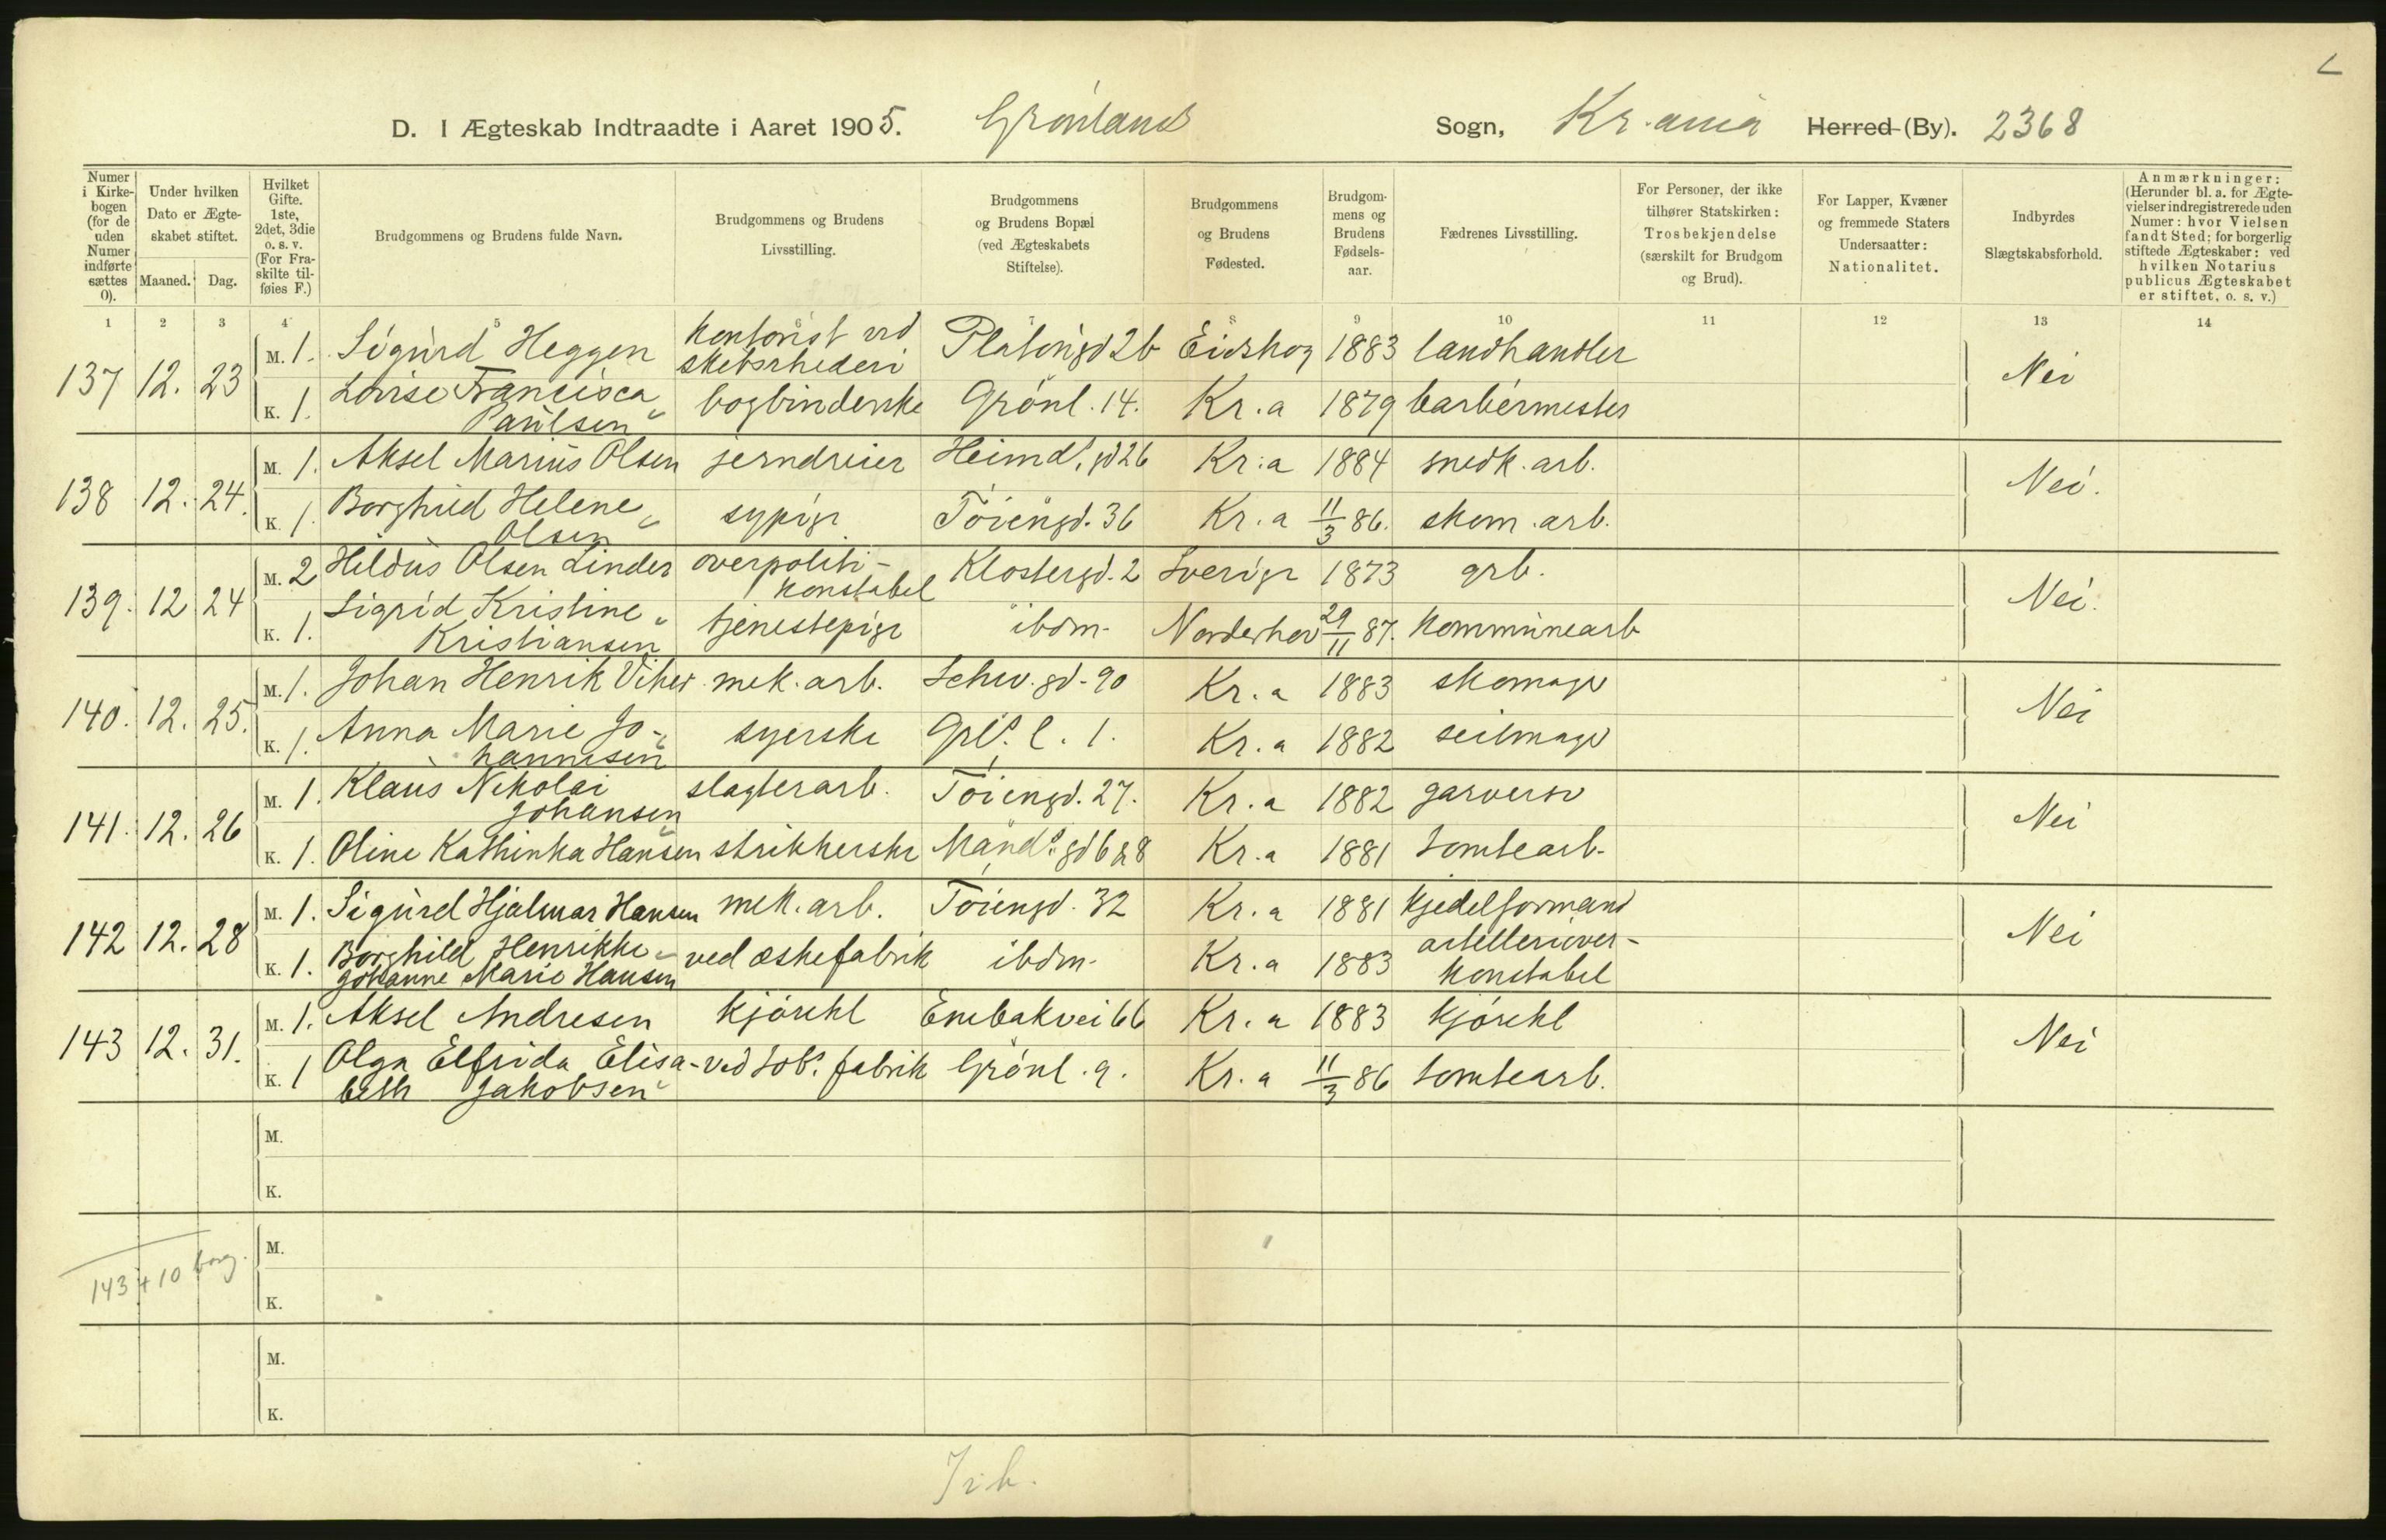 D. I Ægteskab Indtraadte i Aaret 1905. Grønlands Sogn, Kr.ania Herred (By). 2368
Numer i Kirkebogen (for de uden Numer indførte sættes 0).
Under hvilken Dato er Ægteskabet stiftet.
Maaned. Dag.
Hvilket Gifte. 1ste, 2det, 3die o. s. v. (For Fraskilte tilføies F.)
Brudgommens og Brudens fulde Navn.
Brudgommens og Brudens Livsstilling.
Brudgommens og Brudens Bopæl (ved Ægteskabets Stiftelse).
Brudgommens og Brudens Fødested.
Brudgommens og Brudens Fødselsaar.
Fædrenes Livsstilling.
For Personer, der ikke tilhører Statskirken: Trosbekjendelse (særskilt for Brudgom og Brud).
For Lapper, Kvæner og fremmede Staters Undersaatter: Nationalitet.
Indbyrdes Slægtskabsforhold.
Anmærkninger: (Herunder bl. a. for Ægtevielser indregistrerede uden Numer: hvor Vielsen fandt Sted; for borgerlig stiftede Ægteskaber: ved hvilken Notarius publicus Ægteskabet er stiftet, o. s. v.)
1 2 3 4 5 6 7 8 9 10 11 12 13 14
137 12. 23 M. 1. Sigurd Heggen kontorist ved skibsrhederi Platousgd 2b Eidskog 1883 landhandler Nei
K. 1. Lovise Francisca Paulsen bogbinderske Grønl. 14. Kr.a 1879 barbermester
138 12. 24. M. 1. Aksel Marius Olsen jerndreier Heimd. gd 26 Kr.a 1884 snedk. arb. Nei.
K. 1. Borghild Helene Olsen sypige Tøiengd. 36 Kr.a 11/3 86. skom. arb.
139. 12 24 M. 2 Hildus Olsen Linder overpolitikonstabel Klostergd. 2 Sverige 1873 grb. Nei.
K. 1. Sigrid Kristine Kristiansen tjenestepige ibdm. Norderhov 29/11 87. kommunearb
140. 12. 25. M. 1. Johan Henrik Viker mek. arb. Schw. gd. 90 Kr.a 1883 skomager Nei
K. 1. Anna Marie Johannesen syerske Grl's. l. 1. Kr.a 1882 seilmager
141. 12. 26 M. 1. Klaus Nikolai Johansen slagterarb. Tøiengd. 27. Kr.a 1882 garversv Nei
K. 1. Oline Kathinka Hansen strikkerske Mandls gd 6 & 8 Kr.a 1881 tomtearb.
142 12. 28 M. 1. Sigurd Hjalmar Hansen mek. arb. Tøiengd. 32 Kr.a 1881 kjedelformand Nei
K. 1. Borghild Henrikke Johanne Marie Hansen ved æskefabrik ibdm. Kr.a 1883 artelleriover-konstabel
143 12. 31. M. 1. Aksel Andresen kjørekl Enebakvei 66 Kr.a 1883 kjørekl Nei
K. 1 Olga Elfrida Elisabeth Jakobsen ved tobs. fabrik Grønl. 9. Kr.a 11/3 86 tomtearb.
M.
K.
M.
143 + 10 borg.
K.
M.
K.